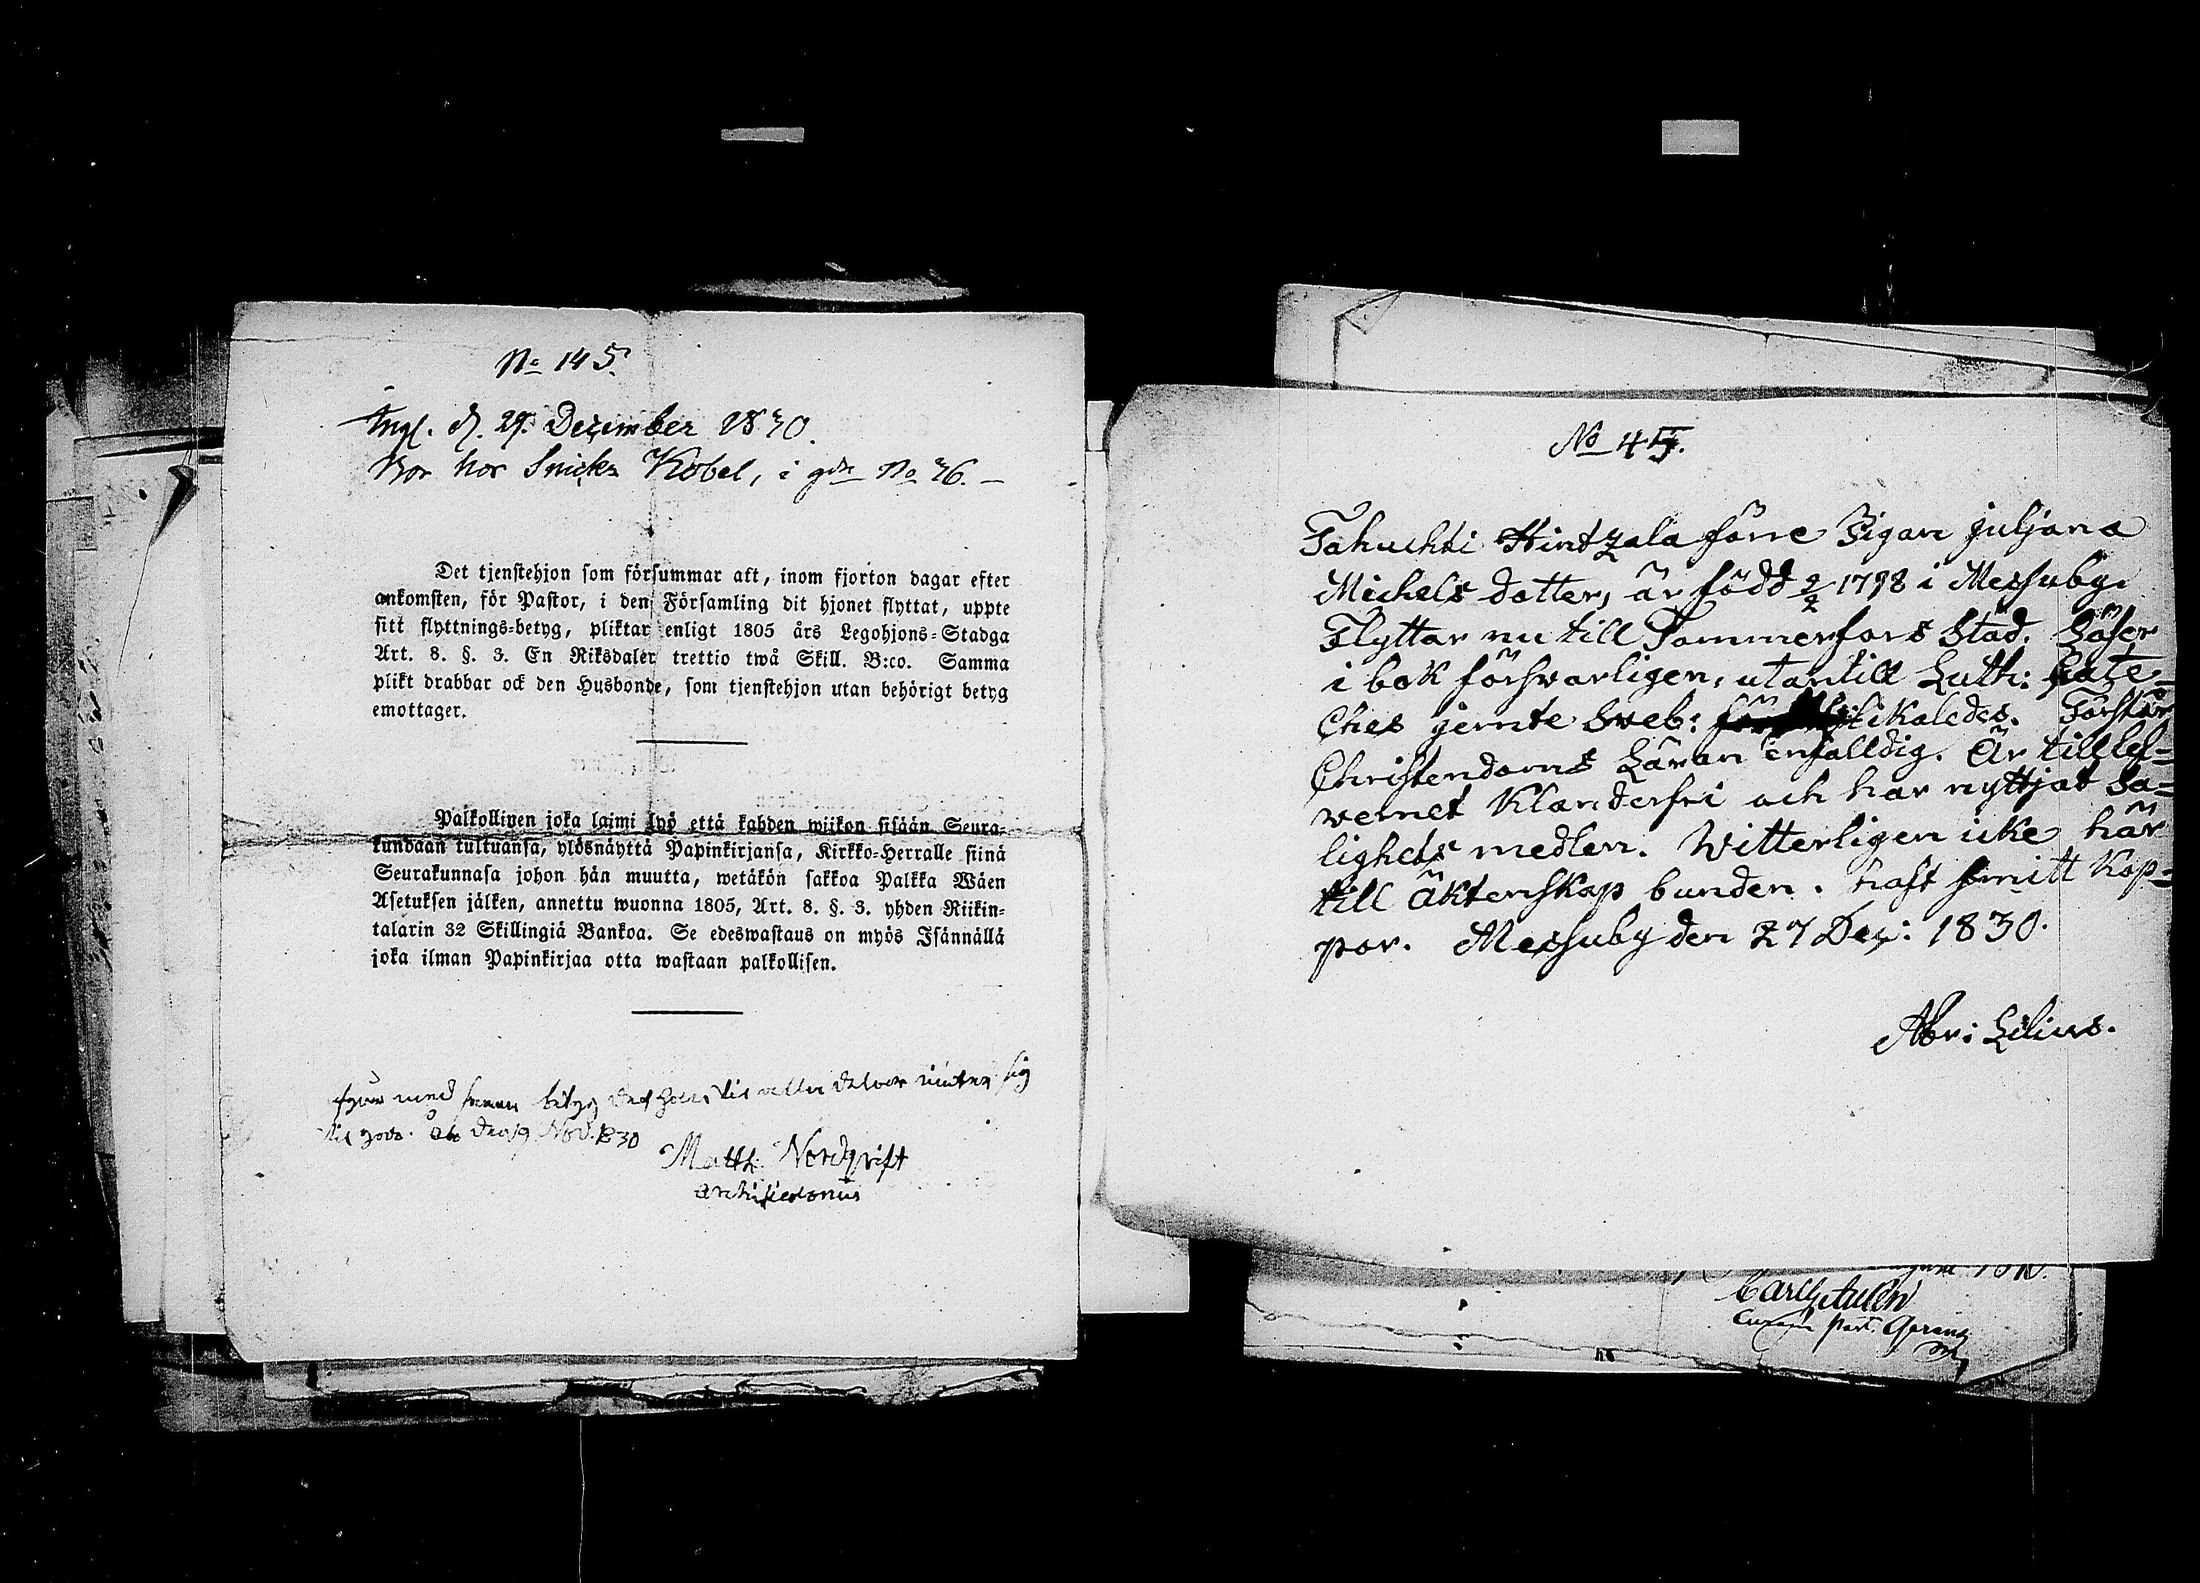 No 145.
Ingl. d. 29. December 1830.
Bor hos Snick. Kobel, i gdn No 36. —
Det tjenstehjon som försummar att, inom fjorton dagar efter
ankomsten, för Pastor, i den Församling dit hjonet flyttat, uppte
sitt flyttnings-betyg, pliktar enligt 1805 års Legohjons-Stadga
Art. 8. §. 3. En Riksdaler trettio twå Skill. B:co. Samma
plikt drabbar ock den Husbonde, som tjenstehjon utan behörigt betyg
emottager.
Palkollinen joka laimi lyö että kahden wiikon sisään Seura-
kundaan tultuansa, ylösnäyttä Papinkirjansa, Kirkko-Herralle siinä
Seurakunnasa johon hän muutta, wetäkön sakkoa Palkka Wäen
Asetuksen jälken, annettu wuonna 1805, Art. 8. §. 3. yhden Riikin-
talarin 32 Skillingiä Bankoa. Se edeswastaus on myös Isännällä
joka ilman Papinkirjaa otta wastaan palkollisen.
med samma betyg sig
den 19 Nov. 1830
Matth. Nordqvist
Archidiaconus
No 45.
Tahuchti Hintzala förre Pigan Juljana
Michels dotter, är född 9/2 1798 i Messuby.
Flyttar nu till Tammerfors Stad. Läser
i bok försvarligen, utantill Luth: Cate-
Ches jemte Sveb: likaledes. Förstår
Christendoms Läran enfalldig. Är till lef-
wernet Klanderfri och har nyttjat Sa-
lighets medlen. Witterligen icke här
till äktenskap bunden. haft smitt Kop-
por. Messuby den 27 Dec: 1830.
Abr: Lilius.